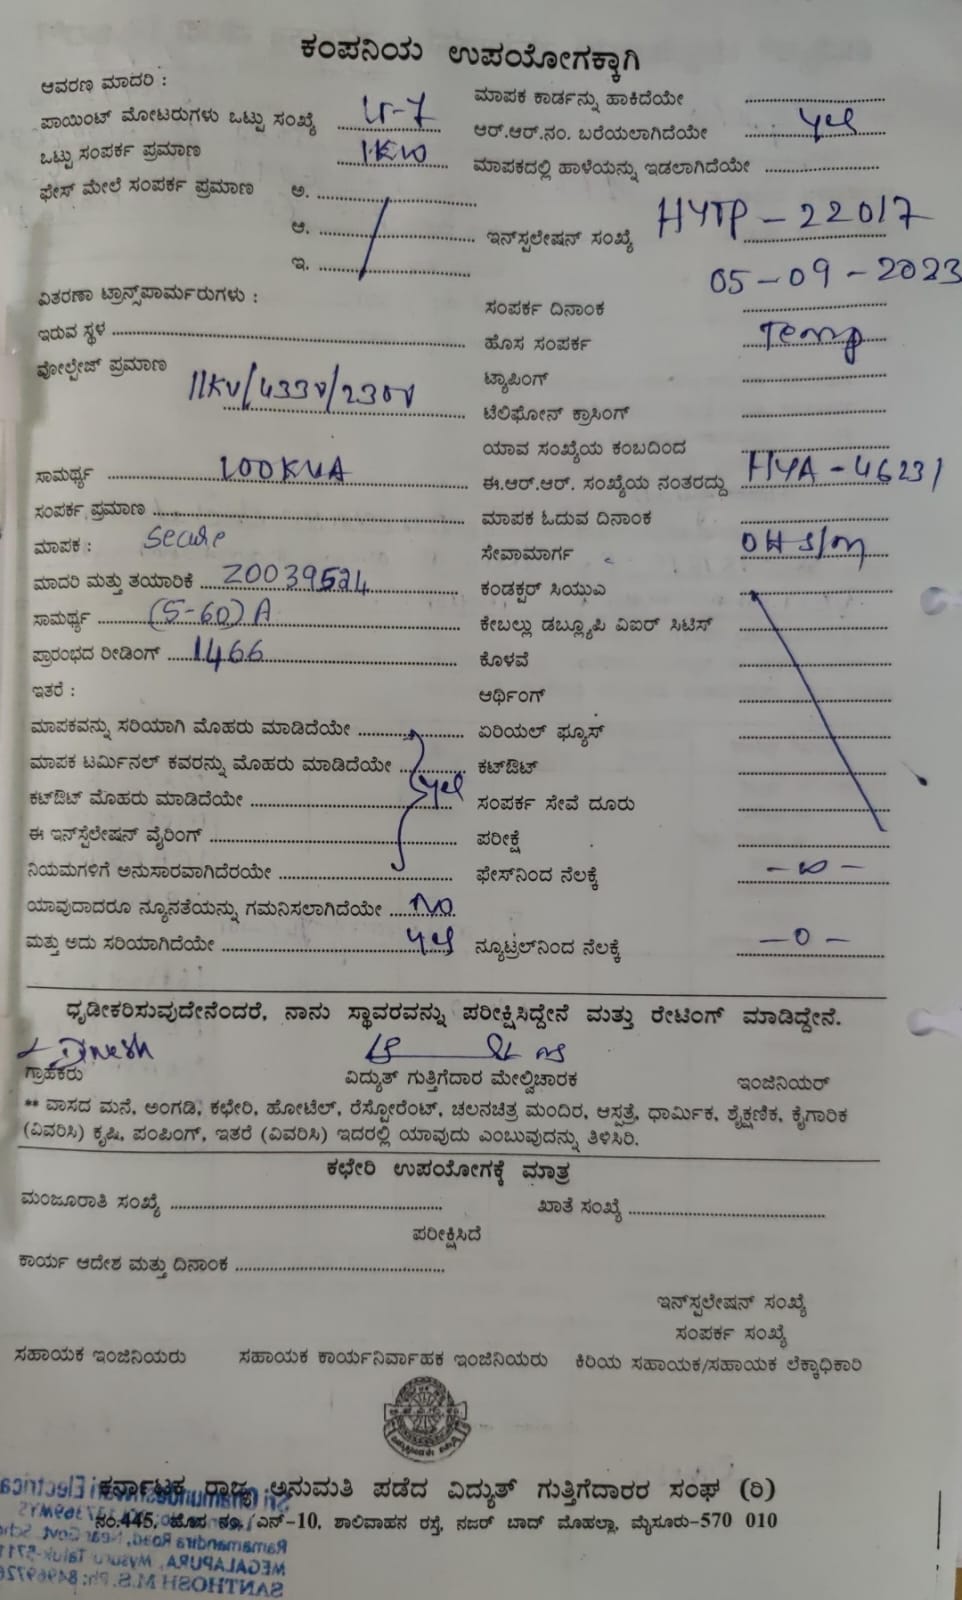 ಕಂಪನಿಯ ಉಪಯೋಗಕ್ಕಾಗಿ
ಆವರಣ ಮಾದರಿ :
ಪಾಯಿಂಟ್ ಮೋಟರುಗಳು ಒಟ್ಟು ಸಂಖ್ಯೆ
ಒಟ್ಟು ಸಂಪರ್ಕ ಪ್ರಮಾಣ 1KW
ಫೇಸ್ ಮೇಲೆ ಸಂಪರ್ಕ ಪ್ರಮಾಣ ಅ.
ಆ.
ಇ.
ವಿತರಣಾ ಟ್ರಾನ್ಸ್‌ಪಾರ್ಮರುಗಳು :
ಇರುವ ಸ್ಥಳ
ವೋಲ್ಟೇಜ್ ಪ್ರಮಾಣ 11KV/433V/230V
ಸಾಮರ್ಥ್ಯ 100KVA
ಸಂಪರ್ಕ ಪ್ರಮಾಣ
ಮಾಪಕ : Secure
ಮಾದರಿ ಮತ್ತು ತಯಾರಿಕೆ Z0039524
ಸಾಮರ್ಥ್ಯ (5-60)A
ಪ್ರಾರಂಭದ ರೀಡಿಂಗ್ 1466
ಇತರೆ :
ಮಾಪಕವನ್ನು ಸರಿಯಾಗಿ ಮೊಹರು ಮಾಡಿದೆಯೇ
ಮಾಪಕ ಟರ್ಮಿನಲ್ ಕವರನ್ನು ಮೊಹರು ಮಾಡಿದೆಯೇ
ಕಟ್‌ಔಟ್ ಮೊಹರು ಮಾಡಿದೆಯೇ yes
ಈ ಇನ್‌ಸ್ಟೆಲೇಷನ್ ವೈರಿಂಗ್
ನಿಯಮಗಳಿಗೆ ಅನುಸಾರವಾಗಿದೆರಯೇ
ಯಾವುದಾದರೂ ನ್ಯೂನತೆಯನ್ನು ಗಮನಿಸಲಾಗಿದೆಯೇ No
ಮತ್ತು ಅದು ಸರಿಯಾಗಿದೆಯೇ yes
ಮಾಪಕ ಕಾರ್ಡನ್ನು ಹಾಕಿದೆಯೇ
ಆರ್.ಆರ್.ನಂ. ಬರೆಯಲಾಗಿದೆಯೇ yes
ಮಾಪಕದಲ್ಲಿ ಹಾಳೆಯನ್ನು ಇಡಲಾಗಿದೆಯೇ
ಇನ್‌ಸ್ಟಲೇಷನ್ ಸಂಖ್ಯೆ HYTP-22017
ಸಂಪರ್ಕ ದಿನಾಂಕ 05-09-2023
ಹೊಸ ಸಂಪರ್ಕ Temp
ಟ್ಯಾಪಿಂಗ್
ಟೆಲಿಫೋನ್ ಕ್ರಾಸಿಂಗ್
ಯಾವ ಸಂಖ್ಯೆಯ ಕಂಬದಿಂದ
ಈ.ಆರ್.ಆರ್. ಸಂಖ್ಯೆಯ ನಂತರದ್ದು HYA-46231
ಮಾಪಕ ಓದುವ ದಿನಾಂಕ
ಸೇವಾಮಾರ್ಗ OH S/m
ಕಂಡಕ್ಟರ್ ಸಿಯುಎ
ಕೇಬಲ್ಲು ಡಬ್ಲ್ಯೂಪಿ ವಿಐರ್ ಸಿಟಿಸ್
ಕೊಳವೆ
ಆರ್ಥಿಂಗ್
ಏರಿಯಲ್ ಫ್ಯೂಸ್
ಕಟ್‌ಔಟ್
ಸಂಪರ್ಕ ಸೇವೆ ದೂರು
ಪರೀಕ್ಷೆ
ಫೇಸ್‌ನಿಂದ ನೆಲಕ್ಕೆ - ∞ -
ನ್ಯೂಟ್ರಲ್‌ನಿಂದ ನೆಲಕ್ಕೆ - 0 -
ಧೃಡೀಕರಿಸುವುದೇನೆಂದರೆ, ನಾನು ಸ್ಥಾವರವನ್ನು ಪರೀಕ್ಷಿಸಿದ್ದೇನೆ ಮತ್ತು ರೇಟಿಂಗ್ ಮಾಡಿದ್ದೇನೆ.
Dinesh
ಗ್ರಾಹಕರು ವಿದ್ಯುತ್ ಗುತ್ತಿಗೆದಾರ ಮೇಲ್ವಿಚಾರಕ ಇಂಜಿನಿಯರ್
** ವಾಸದ ಮನೆ, ಅಂಗಡಿ, ಕಛೇರಿ, ಹೋಟೆಲ್, ರೆಸ್ಟೋರೆಂಟ್, ಚಲನಚಿತ್ರ ಮಂದಿರ, ಆಸ್ಪತ್ರೆ, ಧಾರ್ಮಿಕ, ಶೈಕ್ಷಣಿಕ, ಕೈಗಾರಿಕ
(ವಿವರಿಸಿ) ಕೃಷಿ, ಪಂಪಿಂಗ್, ಇತರೆ (ವಿವರಿಸಿ) ಇದರಲ್ಲಿ ಯಾವುದು ಎಂಬುವುದನ್ನು ತಿಳಿಸಿರಿ.
ಕಛೇರಿ ಉಪಯೋಗಕ್ಕೆ ಮಾತ್ರ
ಮಂಜೂರಾತಿ ಸಂಖ್ಯೆ ಖಾತೆ ಸಂಖ್ಯೆ
ಪರೀಕ್ಷಿಸಿದೆ
ಕಾರ್ಯ ಆದೇಶ ಮತ್ತು ದಿನಾಂಕ
ಇನ್‌ಸ್ಟಲೇಷನ್ ಸಂಖ್ಯೆ
ಸಂಪರ್ಕ ಸಂಖ್ಯೆ
ಸಹಾಯಕ ಇಂಜಿನಿಯರು ಸಹಾಯಕ ಕಾರ್ಯನಿರ್ವಾಹಕ ಇಂಜಿನಿಯರು ಕಿರಿಯ ಸಹಾಯಕ/ಸಹಾಯಕ ಲೆಕ್ಕಾಧಿಕಾರಿ
ಕರ್ನಾಟಕ ರಾಜ್ಯ ಅನುಮತಿ ಪಡೆದ ವಿದ್ಯುತ್ ಗುತ್ತಿಗೆದಾರರ ಸಂಘ (ರಿ)
ನಂ.445, ಹೊಸ ನಂ. ಎನ್-10, ಶಾಲಿವಾಹನ ರಸ್ತೆ, ನಜರ್ ಬಾದ್ ಮೊಹಲ್ಲಾ, ಮೈಸೂರು-570 010
Ramamandira Road, Near Govt.
MEGALAPURA, Mysuru Taluk-
SANTHOSH M.S. Ph: